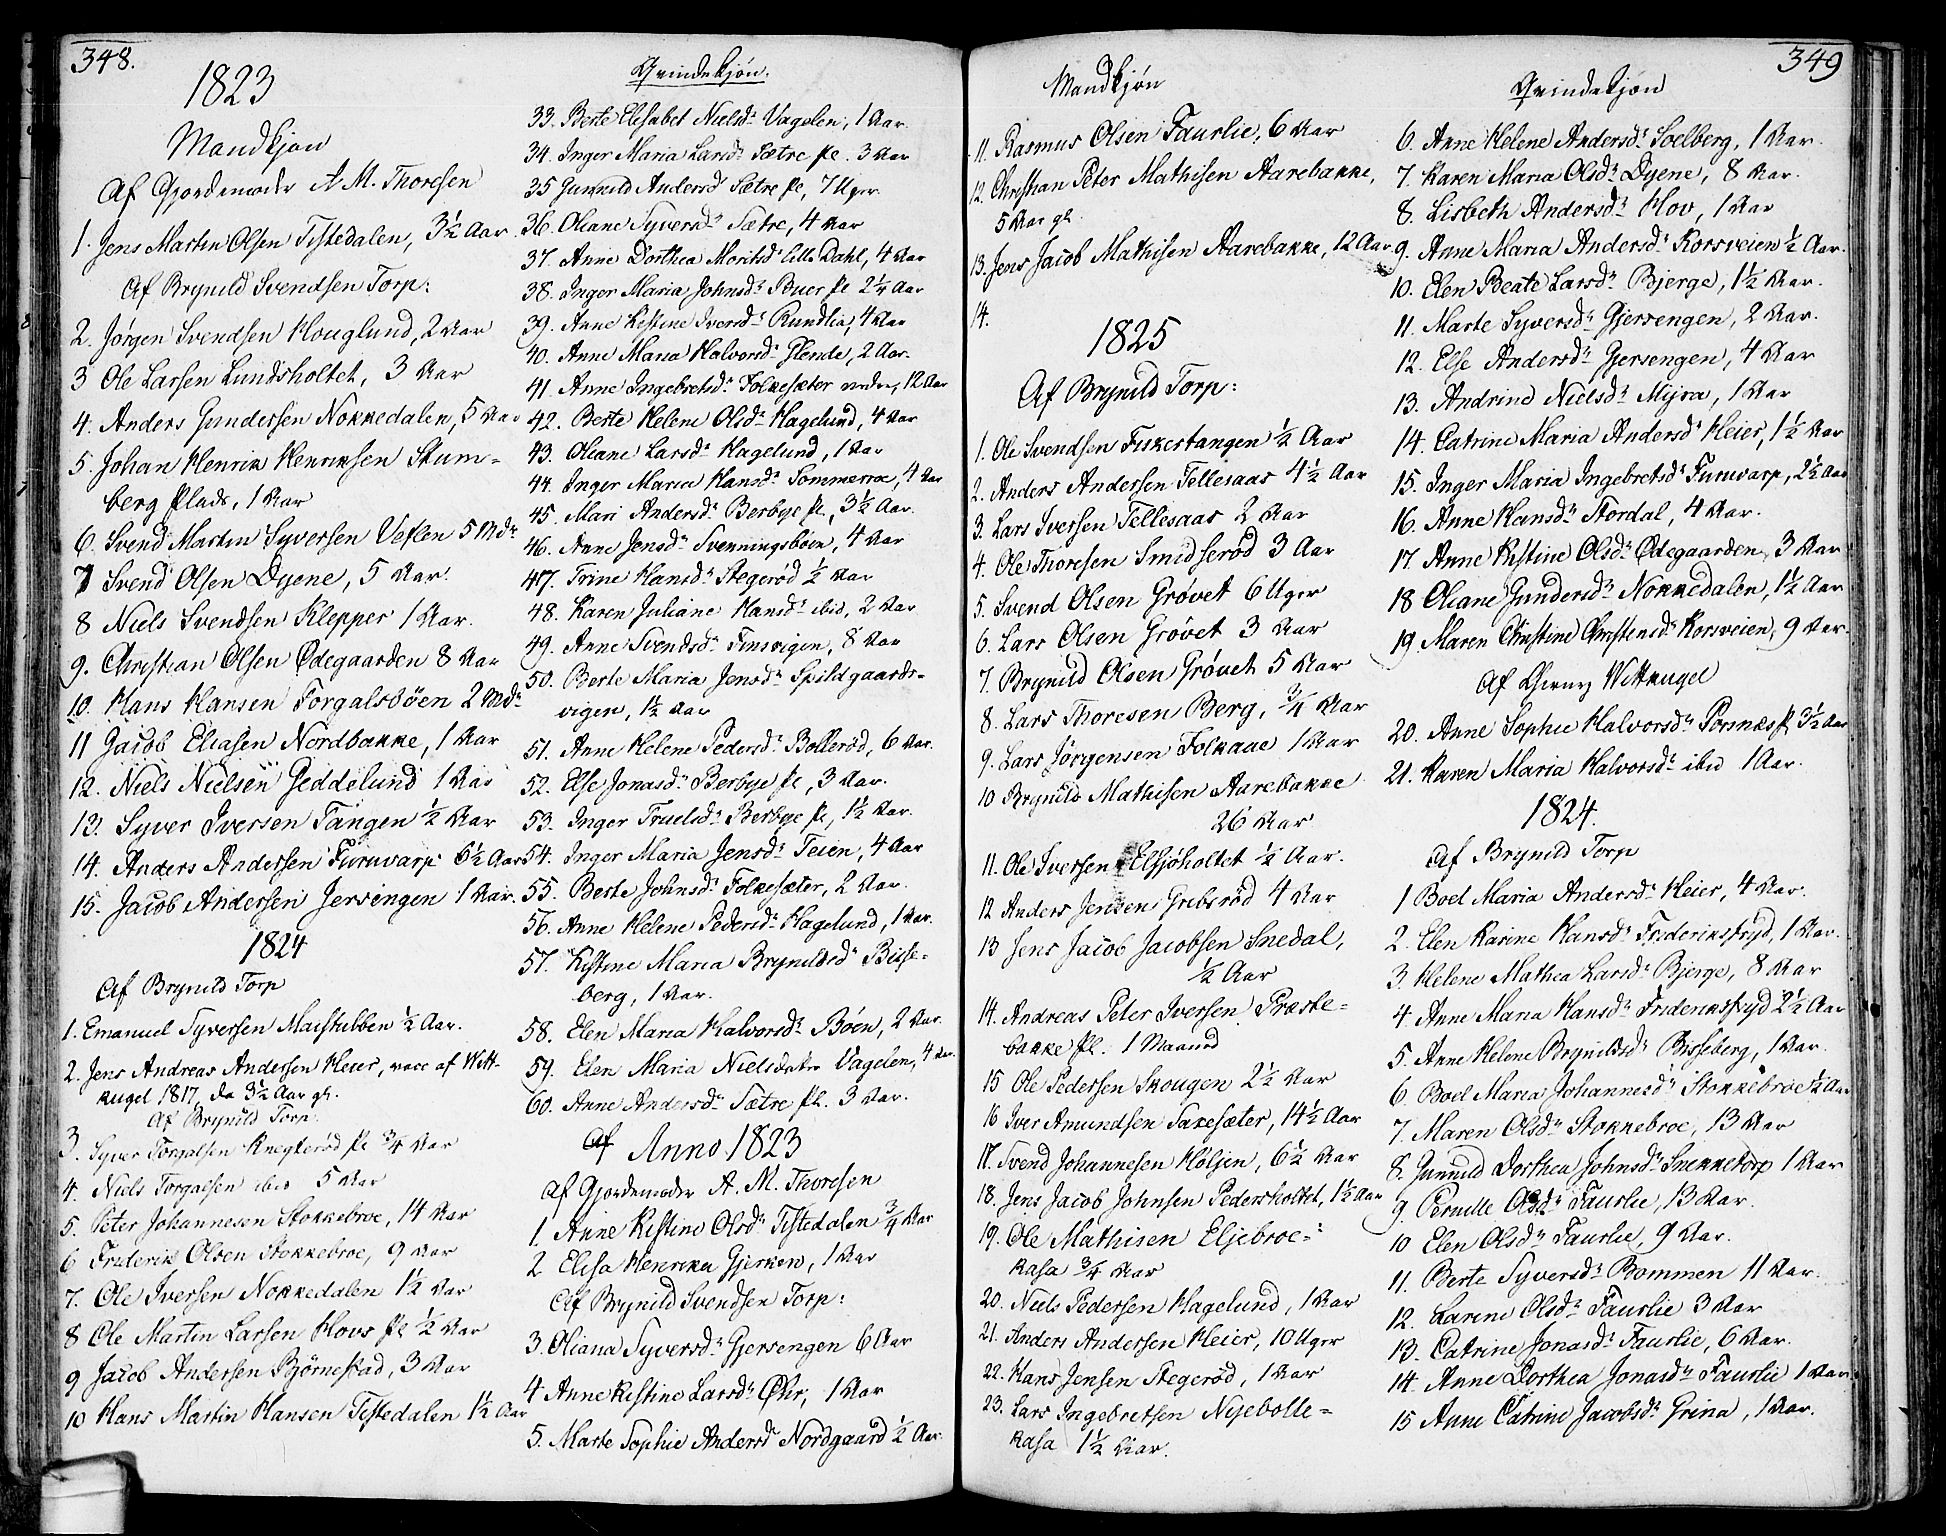 348.
1823
Mandkjøn
Af Gjordemoder A M. Thoresen
1. Jens Martin Olsen Tistedalen, 3½ Aar.
Af Brynild Svendsen Torp:
2. Jørgen Svendsen Houglund, 2 Aar
3 Ole Larsen Lundsholtet, 3 Aar
4. Anders Gundersen Nokkedalen, 5 Aar
5. Johan Henrik Henriksen Skum-
berg Plads, 1 Aar
6. Svend Martin Syversen Veslen 5 Mdr
7 Svend Olsen Dyene, 5 Aar.
8 Niels Svendsen Klepper 1 Aar.
9. Christian Olsen Ødegaarden 8 Aar
10. Hans Hansen Torgalsbøen 2 Mdr
11 Jacob Eliasen Nordbakke, 1 Aar
12. Niels Nielsen Geddelund 1 Aar
13. Syver Iversen Tangen ½ Aar
14. Anders Andersen Furuvarp 6½ Aar
15. Jacob Andersen Jersengen 1 Aar.
1824
Af Brynild Torp
1. Emanuel Syversen Maistubben ½ Aar.
2. Jens Andreas Andersen Heier, vacc af Witt-
kugel 1817, da 3½ Aar gl.
Af Brynild Torp
3. Syver Torgalsen Knegterød pl ¾ Aar
4. Niels Torgalsen ibid 5 Aar
5. Peter Johannesen Stokkebroe, 14 Aar
6 Friderik Olsen Stokkebroe, 9 Aar
7. Ole Iversen Nokkedalen 1½ Aar
8 Ole Martin Larsen Hovs pl ½ Aar
9 Jacob Andersen Bjørnestad, 3 Aar
10 Hans Martin Hansen Tistedalen 1½ Aar
Qvindekjøn.
33. Berte Elisabet Nielsdr Vagelen, 1 Aar.
34. Inger Maria Larsdr Sætre pl. 3 Aar
35 Gunnild Andersd Sætre pl, 7 Uger
36. Oleane Syversdr Sætre, 4 Aar
37. Anne Dorthea Moritsdr lille Dahl, 4 Aar
38. Inger Maria Johnsdr Buer pl 2¼ Aar
39. Anne Kistine Iversdr Rundlia, 4 Aar
40. Anne Maria Halvorsdr Glende, 2 Aar.
41. Anne Ingebretsdr Folkesæter nedre, 12 Aar
42. Berte Helene Olsdr Hagelund, 4 Aar
43. Oleane Larsdr Hagelund, 1 Aar
44. Inger Maria Hansdr Sommerroe, 4 Aar
45. Mari Andersdr Berbye pl, 3½ Aar.
46. Anne Jensdr Svenningsbøen, 4 Aar
47. Trine Hansdr Stegerød ½ Aar
48. Karen Juliane Hansdr ibid, 2 Aar
49. Anne Svendsdr Finsvigen, 8 Aar
50. Berte Maria Jensdr Spildgaards-
vigen, 1½ Aar
51. Anne Helene Pedersdr Bollerød, 6 Aar.
52. Else Jonasdr Berbye pl, 3 Aar.
53. Inger Truelsdr Berbye pl, 1½ Aar.
54. Inger Maria Jensdr Teien, 4 Aar
55. Berte Johnsdr Folkesæter, 2 Aar.
56. Anne Helene Pedersdr Hagelund, 1 Aar.
57. Kistine Maria Brynildsdr Bisse-
berg, 1 Aar.
58. Elen Maria Halvorsdr Bøen, 2 Aar.
59. Elen Maria Nielsdatr Vagelen, 4 Aar.
60. Anne Andersdr Sætre pl. 3 Aar.
Af Anno 1823
Af Gjordemoder A. M. Thoresen
1. Anne Kistine Olsdr Tistedalen ¾ Aar
2 Elisa Henrika Gjerken, 1 Aar
Af Brynild Svendsen Torp:
3. Oliana Syversdr Gjersengen 6 Aar
4 Anne Kistine Larsdr Øhr, 1 Aar
5. Marte Sophie Andersd Nordgaard ½ Aar.
349
Mandkjøn
11. Rasmus Olsen Faurlie, 6 Aar
12. Christian Peter Mathisen Aarebakke,
5 Aar gl.
13. Jens Jacob Mathisen Aarebakke, 12 Aar
14.
1825
Af Brynild Torp:
1. Ole Svendsen Fiskestangen ½ Aar
2. Anders Andersen Tellesaas 4½ Aar
3. Lars Iversen Tellesaas 2 Aar
4. Ole Thoresen Smidserød 3 Aar
5. Svend Olsen Grøvet 6 Uger
6. Lars Olsen Grøvet 3 Aar
7. Brynild Olsen Grøvet 5 Aar
8. Lars Thoresen Berg, ¾ Aar
9. Lars Jørgensen Folkaae 1 Aar
10 Brynild Mathisen Aarebakke
26 Aar
11. Ole Iversen Elsjøholtet ½ Aar.
12 Anders Jensen Grebsrød 4 Aar
13 Jens Jacob Jacobsen Snedal,
½ Aar
14. Andreas Peter Iversen Præste-
bakke pl. 1 Maaned
15 Ole Pedersen Skougen 2½ Aar
16 Iver Amundsen Saxesæter, 14½ Aar
17. Svend Johannesen Høljen, 6½ Aar
18. Jens Jacob Johnsen Pedersholtet, 1½ Aar
19. Ole Mathisen Eljebroe-
kasa ¾ Aar
20. Niels Pedersen Hagelund, 1 Aar
21. Anders Andersen Heier, 10 Uger
22. Hans Jensen Stegerød, 1 Aar
23. Lars Ingebretsen Nyebolle-
kasa 1½ Aar.
Qvindekjøn
6. Anne Helene Andersdr Soelberg, 1 Aar.
7. Karen Maria Olsdr Dyene, 8 Aar.
8. Lisbeth Andersdr Hov, 1 Aar
9. Anne Maria Andersdr Korsveien ½ Aar.
10. Elen Beate Larsdr Bjerge, 1½ Aar.
11. Marte Syversdr Gjersengen, 2 Aar.
12. Else Andersdr Gjersengen, 4 Aar
13. Andrine Nielsdr Myra, 1 Aar
14. Catrine Maria Andersdr Heier, 1½ Aar
15. Inger Maria Ingebretsd Furuvarp, 2½ Aar
16. Anne Hansdr Stordal, 4 Aar.
17. Anne Kistine Olsdr Ødegaarden, 3 Aar
18 Oleane Gundersdr Nokkedalen, 1½ Aar
19. Maren Christine Christensdr Korsveien, 9 Aar.
Af Wittkugel
20. Anne Sophie Halvorsdr Porsnæs pl 3½ Aar
21. Karen Maria Halvorsdr ibid 1 Aar.
1824.
Af Brynild Torp
1 Boel Maria Andersdr Heier, 4 Aar.
2. Elen Karine Hansdr Frideriksfryd, 1 Aar.
3. Helene Mathea Larsdr Bjerge, 8 Aar
4. Anne Maria Hansdr Frideriksfryd 2½ Aar
5. Anne Helene Brynildsdr Bisseberg, 1 Aar.
6. Boel Maria Johannesdr Stokkebroe ½ Aar
7. Maren Olsdr Stokkebroe, 13 Aar
8. Gunnild Dorthea Johnsdr Snekketorp 1 Aar
9. Pernille Olsdr Faurlie, 13 Aar.
10 Elen Olsdr Faurlie, 9 Aar.
11. Berte Syversdr Bommen 11 Aar.
12. Karene Olsdr Faurlie 3 Aar
13. Catrine Jonasdr Faurlie, 6 Aar.
14. Anne Dorthea Jonasdr Faurlie 1 Aar.
15 Anne Catrine Jacobsdr Grina, 1 Aar.